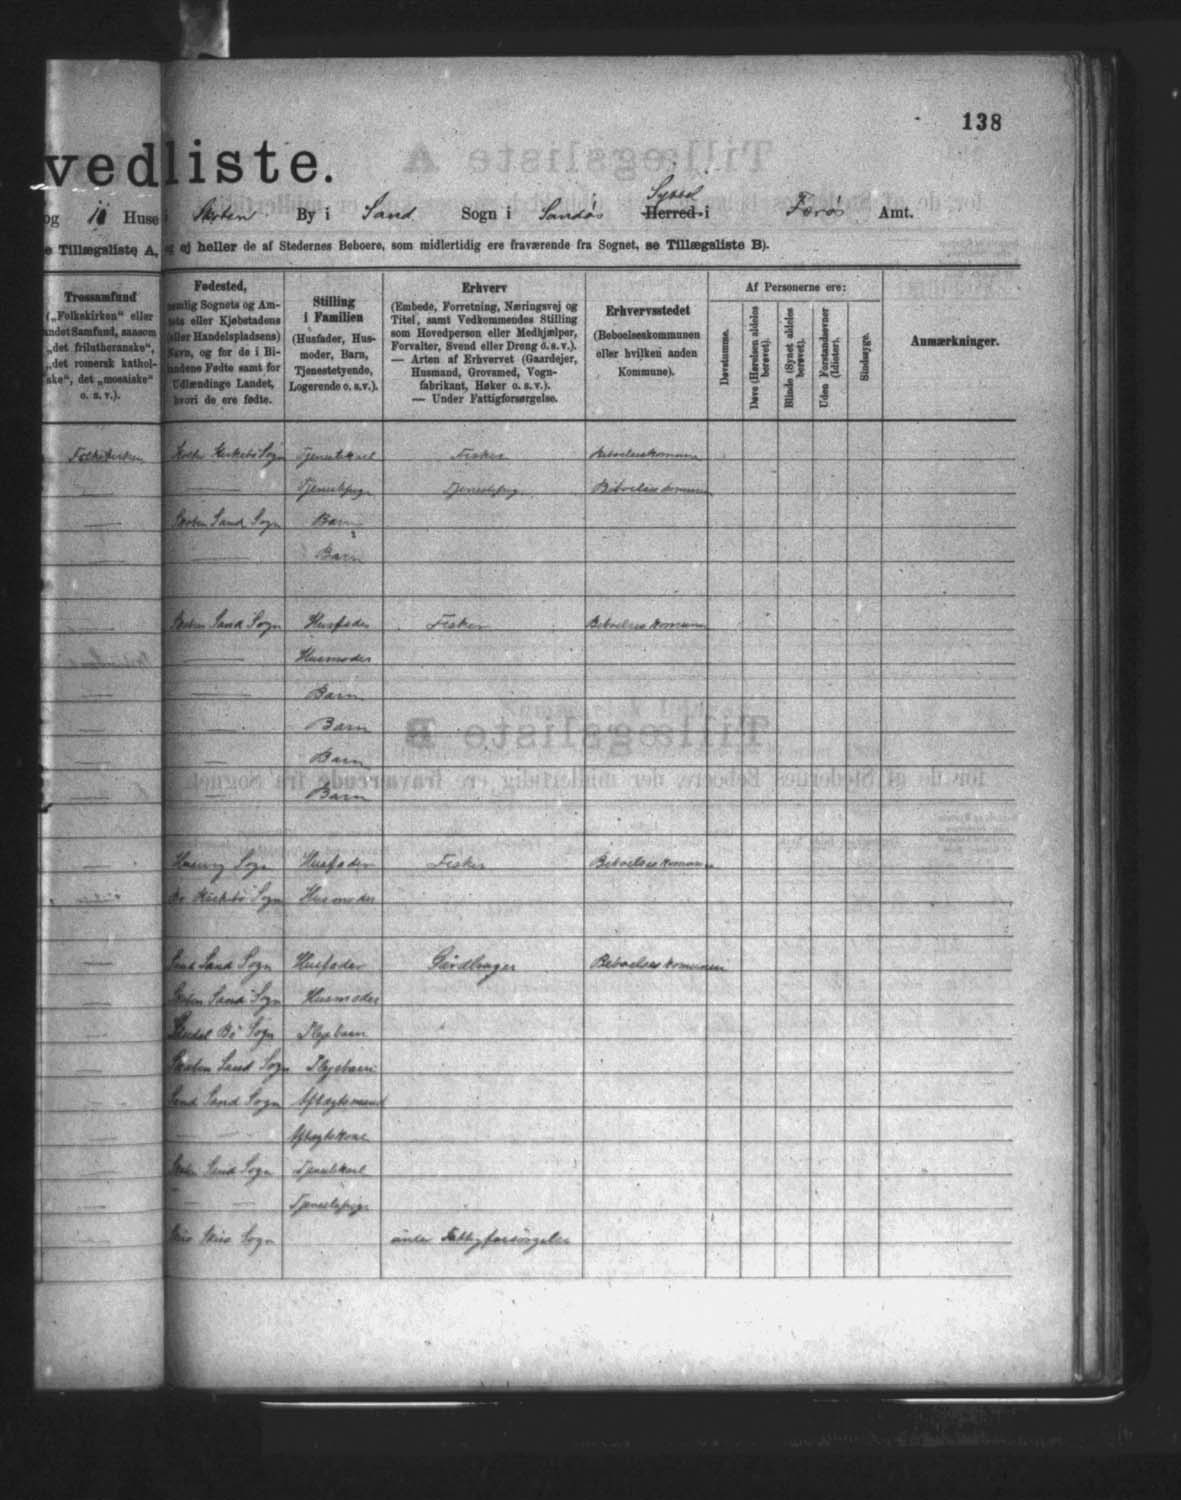 138
vedliste.
og 10 Huse i Skoben By i Sand Sogn i Sandøs Syssel Herred i Førøs Amt.
e Tillægsliste A, og ej heller de af Stedernes Beboere, som midlertidig ere fraværende fra Sognet, se Tillægsliste B).
Trossamfund
(„Folkekirken“ eller
andet Samfund, saasom
„det frilutheranske“,
„det romersk kathol-
ske“, det „mosaiske“
o. s. v.).
Fødested,
nemlig Sognets og Am-
tets eller Kjøbstadens
(eller Handelspladsens)
Navn, og for de i Bi-
landene Fødte samt for
Udlændinge Landet,
hvori de ere fødte.
Stilling
i Familien
(Husfader, Hus-
moder, Barn,
Tjenestetyende,
Logerende o. s. v.).
Erhverv
(Embede, Forretning, Næringsvej og
Titel, samt Vedkommendes Stilling
som Hovedperson eller Medhjælper,
Forvalter, Svend eller Dreng o. s. v.).
— Arten af Erhvervet (Gaardejer,
Husmand, Grovsmed, Vogn-
fabrikant, Høker o. s. v.).
— Under Fattigforsørgelse.
Erhvervsstedet
(Beboelseskommunen
eller hvilken anden
Kommune).
Af Personerne ere:
Døvstumme.
Døve (Hørelsen aldeles
berøvet).
Blinde (Synet aldeles
berøvet).
Uden Forstandsevner
(Idioter).
Sindssyge.
Anmærkninger.
Folkekirken Kirkebø Sogn Tjenestekarl Fisker Beboelseskomune
— — Tjenestepige Tjenestepige Beboelseskomune
— Skoben Sand Sogn Barn
— Barn
Skoben Sand Sogn Husfader Fisker Beboelseskomune
— Husmoder
— — Barn
— — Barn
— — Barn
— — Barn
Sogn Husfader Fisker Beboelseskomune
Kirkebø Sogn Husmoder
— Sand Sand Sogn Husfader Gårdbruger Beboelseskomunen
— Skoben Sand Sogn Husmoder
— Bø Sogn Plejebarn
— Skoben Sand Sogn Plejebarn
— Sand Sand Sogn Aftægtsmand
— — — Aftægtskone
— Skoben Sand Sogn Tjenestekarl
— — — Tjenestepige
— Sogn under Fattigforsørgelse